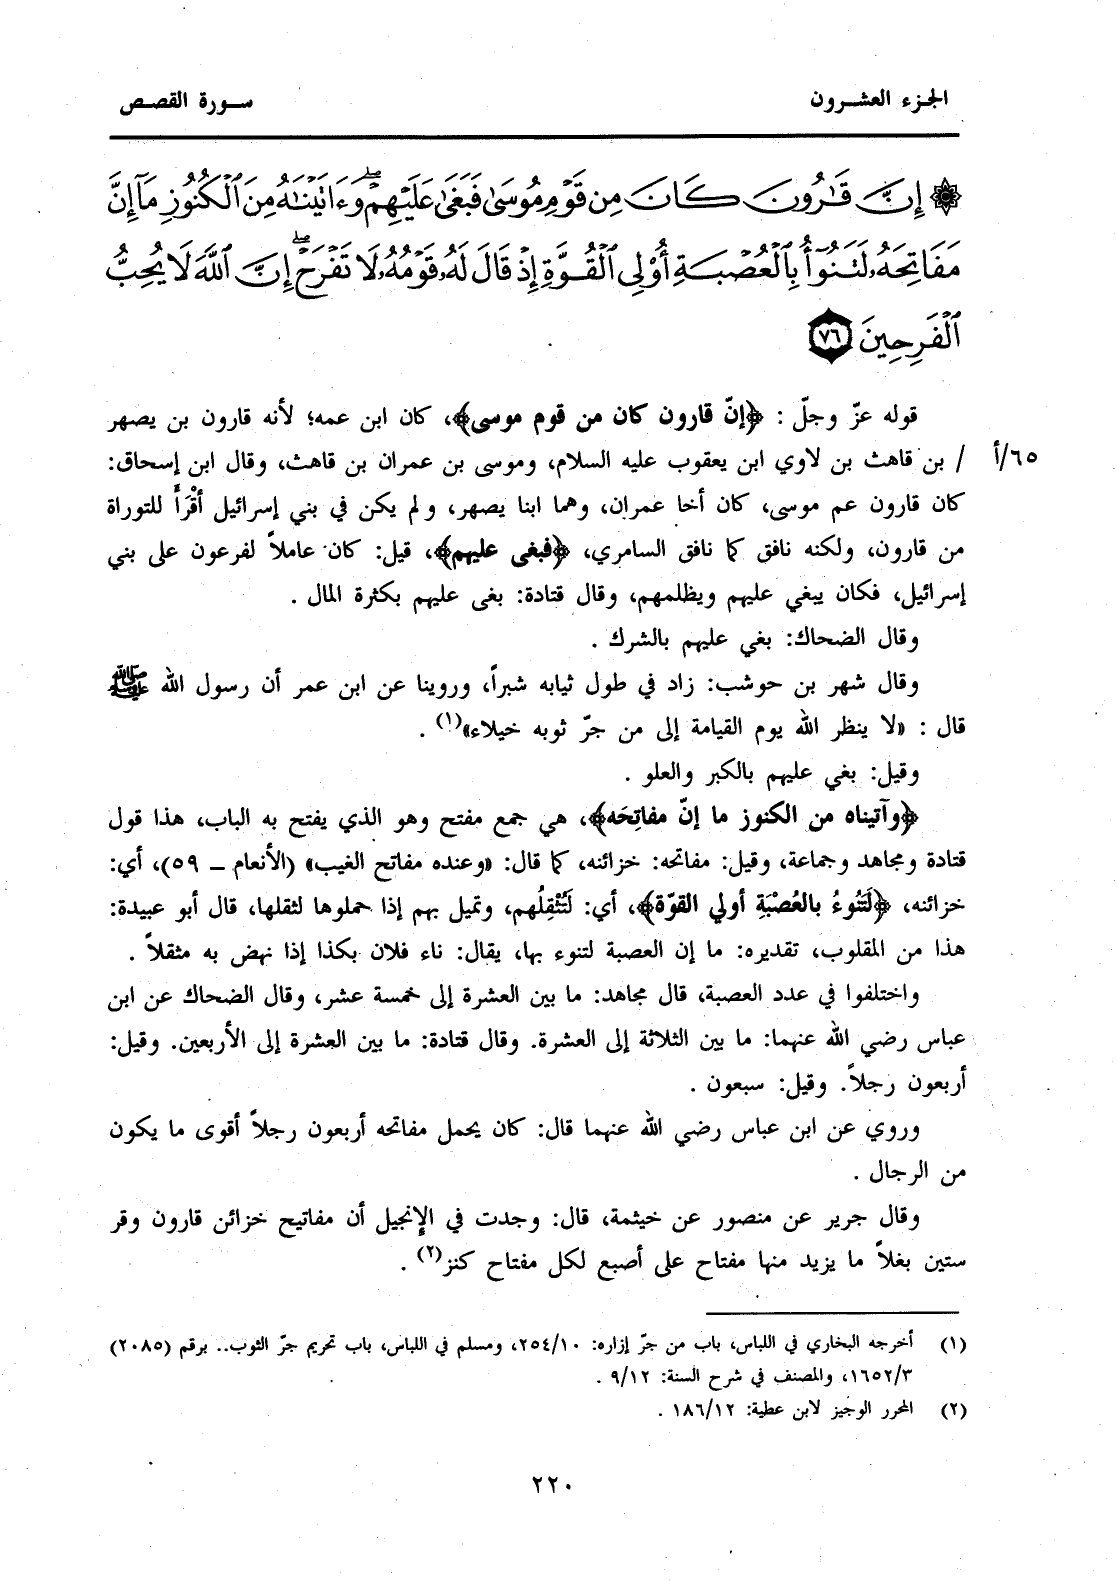 الجزء العشرون
سورة القصص
۞ إِنَّ قَٰرُونَ كَانَ مِن قَوْمِ مُوسَىٰ فَبَغَىٰ عَلَيْهِمْ ۖ وَءَاتَيْنَٰهُ مِنَ ٱلْكُنُوزِ مَآ إِنَّ
مَفَاتِحَهُۥ لَتَنُوٓأُ بِٱلْعُصْبَةِ أُو۟لِى ٱلْقُوَّةِ إِذْ قَالَ لَهُۥ قَوْمُهُۥ لَا تَفْرَحْ ۖ إِنَّ ٱللَّهَ لَا يُحِبُّ
ٱلْفَرِحِينَ ﴿٧٦﴾
قوله عزّ وجلّ : ﴿إنّ قارون كان من قوم موسى﴾، كان ابن عمه؛ لأنه قارون بن يصهر
٦٥/أ / بن قاهث بن لاوي ابن يعقوب عليه السلام، وموسى بن عمران بن قاهث، وقال ابن إسحاق:
كان قارون عم موسى، كان أخا عمران، وهما ابنا يصهر، ولم يكن في بني إسرائيل أقْرَأَ للتوراة
من قارون، ولكنه نافق كما نافق السامري، ﴿فبغى عليهم﴾، قيل: كان عاملاً لفرعون على بني
إسرائيل، فكان يبغي عليهم ويظلمهم، وقال قتادة: بغى عليهم بكثرة المال .
وقال الضحاك: بغي عليهم بالشرك .
وقال شهر بن حوشب: زاد في طول ثيابه شبراً، وروينا عن ابن عمر أن رسول الله ﷺ
قال : «لا ينظر الله يوم القيامة إلى من جرّ ثوبه خيلاء»(١) .
وقيل: بغي عليهم بالكبر والعلو .
﴿وآتيناه من الكنوز ما إنّ مفاتِحَه﴾، هي جمع مفتح وهو الذي يفتح به الباب، هذا قول
قتادة ومجاهد وجماعة، وقيل: مفاتحه: خزائنه، كما قال: «وعنده مفاتح الغيب» (الأنعام ــ ٥٩)، أي:
خزائنه، ﴿لَتَنُوءُ بالعُصْبَةِ أولي القوّة﴾، أي: لَتُثْقِلُهم، وتميل بهم إذا حملوها لثقلها، قال أبو عبيدة:
هذا من المقلوب، تقديره: ما إن العصبة لتنوء بها، يقال: ناء فلان بكذا إذا نهض به مثقلاً .
واختلفوا في عدد العصبة، قال مجاهد: ما بين العشرة إلى خمسة عشر، وقال الضحاك عن ابن
عباس رضي الله عنهما: ما بين الثلاثة إلى العشرة. وقال قتادة: ما بين العشرة إلى الأربعين. وقيل:
أربعون رجلاً. وقيل: سبعون .
وروي عن ابن عباس رضي الله عنهما قال: كان يحمل مفاتحه أربعون رجلاً أقوى ما يكون
من الرجال .
وقال جرير عن منصور عن خيثمة، قال: وجدت في الإنجيل أن مفاتيح خزائن قارون وقر
ستين بغلاً ما يزيد منها مفتاح على أصبع لكل مفتاح كنز(٢) .
(١) أخرجه البخاري في اللباس، باب من جرّ إزاره: ٢٥٤/١٠، ومسلم في اللباس، باب تحريم جرّ الثوب.. برقم (٢٠٨٥)
١٦٥٢/٣، والمصنف في شرح السنة: ٩/١٢ .
(٢) المحرر الوجيز لابن عطية: ١٨٦/١٢ .
٢٢٠